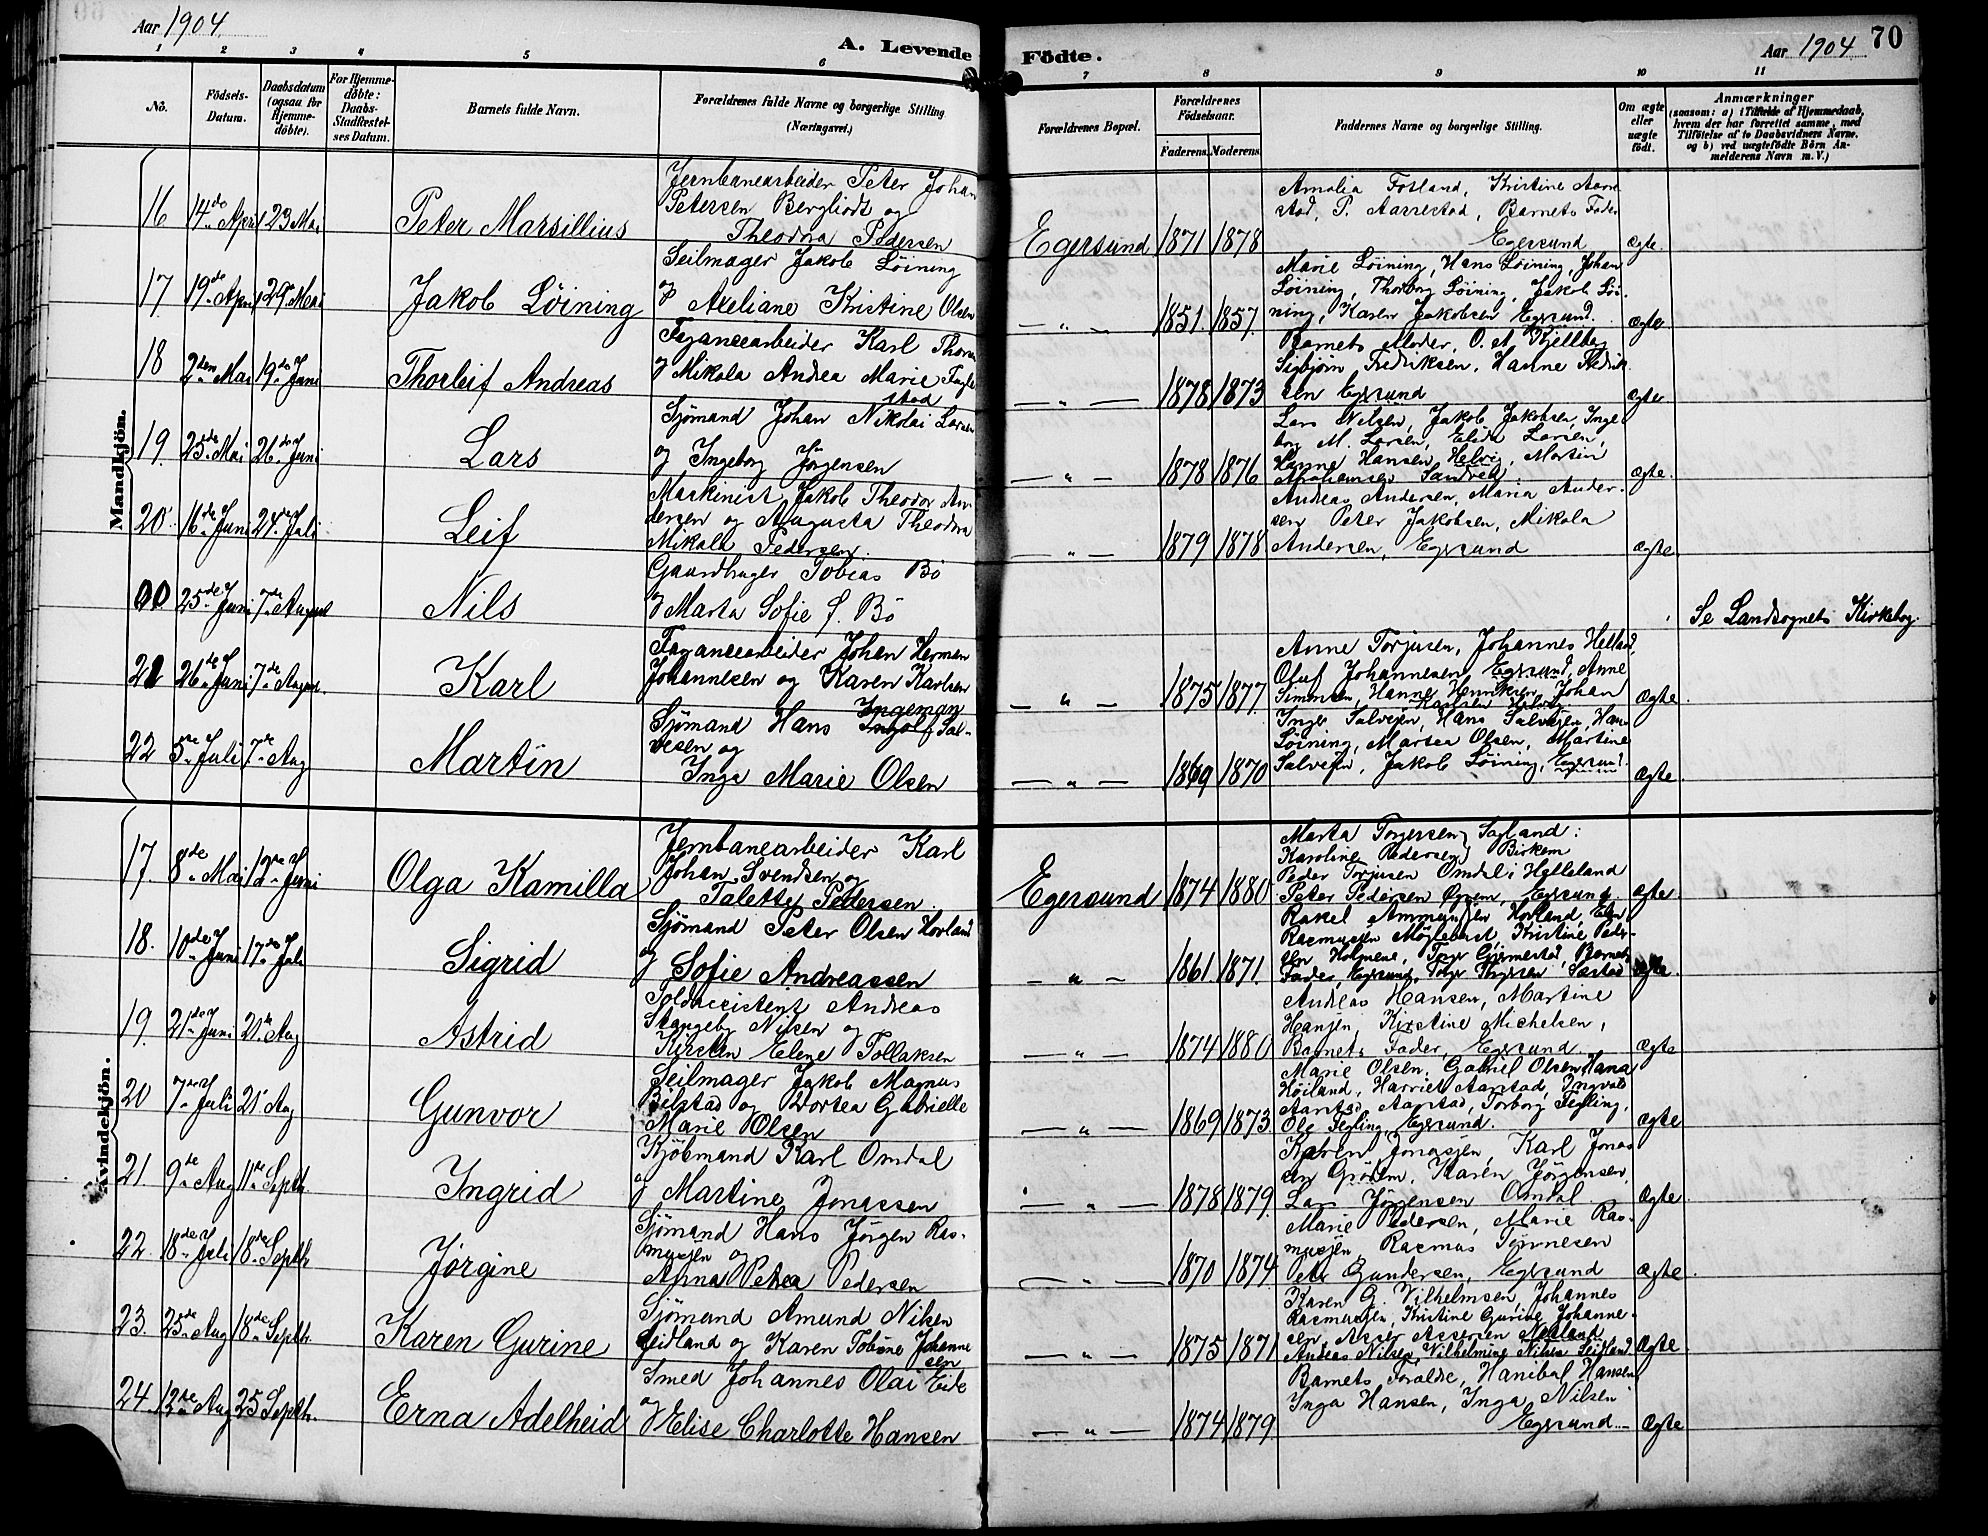 Aar 1904.
A. Levende Födte.
Aar 1904 70
1 2 3 4 5 6 7 8 9 10 11
No.
Födsels-Datum.
Daabsdatum (ogsaa for Hjemme-döbte).
For Hjemme-döbte: Daabs-Stadfæstel-ses Datum.
Barnets fulde Navn.
Forældrenes fulde Navne og borgerlige Stilling (Næringsvei.)
Forældrenes Bopæl.
Forældrenes Födselsaar.
Faderens. Moderens.
Faddernes Navne og borgerlige Stilling.
Om ægte eller uægte födt.
Anmærkninger
(saasom: a) i Tilfælde af Hjemmedaab,
hvem der har forrettet samme, med
Tilföielse af to Daabsvidners Navne,
og b) ved uægtefödte Börn An-
melderens Navn m. V.)
Mandkjön.
16 14de April 23 Mai
Peter Marsillius
Jernbanearbeider Peter Johan
Petersen Bergliodt og
Theodora Pedersen
Egersund 1871 1878
Amalia Fotland, Kristine Aarre
stad, P. Aarrestad, Barnets Fader
Egersund
Ægte.
17. 19de April 29 Mai
Jakob Löining
Seilmager Jakob Löining
og Axeliane Kristine Olsen
— " — 1851. 1857.
Marie Löining, Hans Löining, Johan
Löining, Thorborg Löining, Jakob Löi-
ning, Karen Jakobsen Egersund.
Ægte
18 2den Mai 19de Juni
Thorleif Andreas
Fayancearbeider Karl
og Mikala Andrea Marie Fugle
stad
— " — 1878 1873
Barnets Moder, O. A. Kjellberg
Sigbjørn Fredriksen, Hanne Fredrik
sen Egersund
Ægte
19. 25de Mai 26de Juni
Lars
Sjömand Johan Nikolai Larsen
og Ingeborg Jörgensen
— " — 1878 1876
Lars Nilsen, Jakob Jakobsen, Inge
borg M. Larsen, Elida Larsen,
Hanne Hansen, Helvig, Martin
Abrahamsen Sandved
Ægte.
20. 16de Juni 24de Juli
Leif
Maskinist Jakob Theodor An
dersen og Augusta Theodora
Mikala Pedersen.
— " — 1879 1878
Andreas Andersen, Maria Ander-
sen Peter Jakobsen, Mikala
Andersen, Egersund
Ægte
00 25de Juni 7de August
Nils
Gaardbruger Tobias Bö
og Marta Sofie f. Bö
Se Landsognets Kirkebog.
21 26de Juni 7de August.
Karl
Fayancearbeider Johan Herman
Johannesen og Karen Karlsen
— " — 1875 1877.
Anne Torjusen, Johannes Helland,
Oluf Johannesen Egersund, Anne
Simonsen, Hanne Henriksen, Johan
Karlsen Helvig
Ægte
22 5te Juli 7de Aug
Martin
Ingeman
Sjömand Hans Ingolf Sal-
vesen og
Inga Marie Olsen
— " — 1869 1870
Inger Salvesen, Hans Salvesen, Hans
Löining, Martea Olsen, Martine
Salvesen, Jakob Löining, Egersund.
Ægte
Kvindekjön.
17. 8de Mai 12te Juni
Olga Kamilla
Jernbanearbeider Karl
Johan Svendsen og
Talette Pedersen.
Egersund 1874 1880
Marta Torgersen Sagland:
Karoline Pedersen Birkem
Peder Torjusen Omdal i Helleland
Peter Pedersen, Egersund
Ægte
18. 10de Juni 17de Juli
Sigrid
Sjömand Peter Olsen Hovland
og
Sofie Andreassen
— " — 1861. 1871.
Rakel Hovland, Elen
Rasmussen Möglebust, Kristine Peder-
sen Holmene, Torger Gjermestad, Barnets
Fader, Egersund, Torger Torgersen Sæstad
Ægte.
19. 21de Juni 21de Aug
Astrid
Toldassistent Andreas
Stangeby Nilsen og
Kirsten Elene Tollaksen
— " — 1874 1880
Andreas Hansen, Martine
Hansen, Kirstine Michelsen,
Barnets Fader, Egersund.
Ægte
20 7de Juli 21 Aug
Gunvor
Seilmager Jakob Magnus
Bilstad og Dortea Gabrielle
Marie Olsen
— " — 1869 1873
Marie Olsen, Gabriel Olsen, Hana
Höiland, Harriet Aarstad, Ingvald
Aarstad, Torborg Fegling,
Ole Fegling, Egersund.
Ægte
21. 9de Aug 11de Septb.
Ingrid
Kjöbmand Karl Omdal
og Martine Jonassen
— " — 1878 1879.
Karen Jonasjen, Karl Jonas
sen Grödem, Karen Jörgensen,
Lars Jörgensen Omdal.
Ægte
22. 18de Juli 18de Septb.
Jørgine
Sjömand Hans Jörgen Ras-
musjen og
Anna Petrea Pedersen
— " — 1870 1874
Marie Pedersen, Marie Ras-
musjen, Rasmus Tönnesen
Peter Gundersen, Egersund
Ægte.
23. 25de Aug 18de Septb.
Karen Gurine
Sjömand Amund Nilsen
Seidland og Karen Tobine Johanne
sen
— " — 1875 1871
Karen G. Vilhelmsen, Johannes
Rasmusjen, Kristine Gurine Johanne-
sen, Asser Assersen Nesland
Andreas Nilsen, Vilhelmine Nilsen Seidland
Ægte
24. 12te Aug 25 Septb.
Erna Adelheid
Smed Johannes Olai Eide
og Elise Charlotte Hansen
— " — 1874 1879
Barnets Foraldre, Hanibal Hansen
Inga Hansen, Inga Nilsen
Egersund.
Ægte